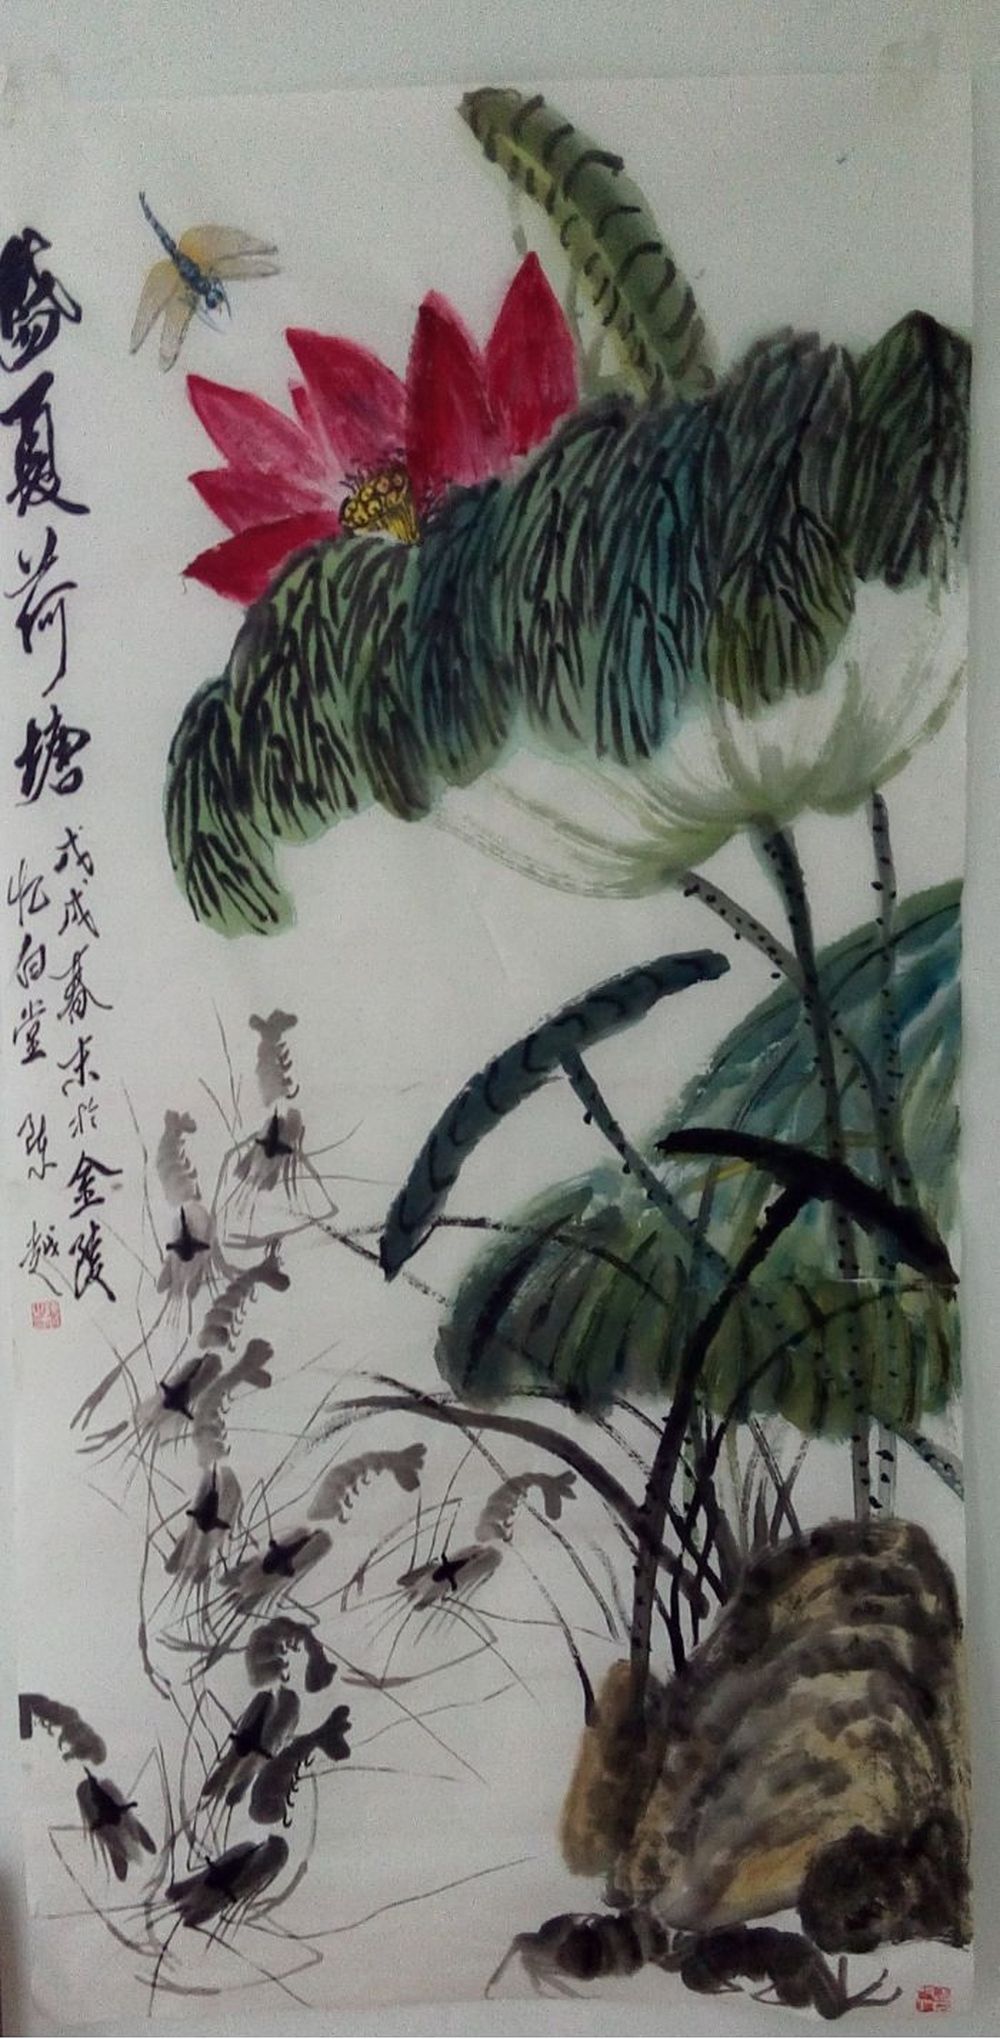 盛夏荷塘
戊戌春末於金陵
忆白堂 陈越